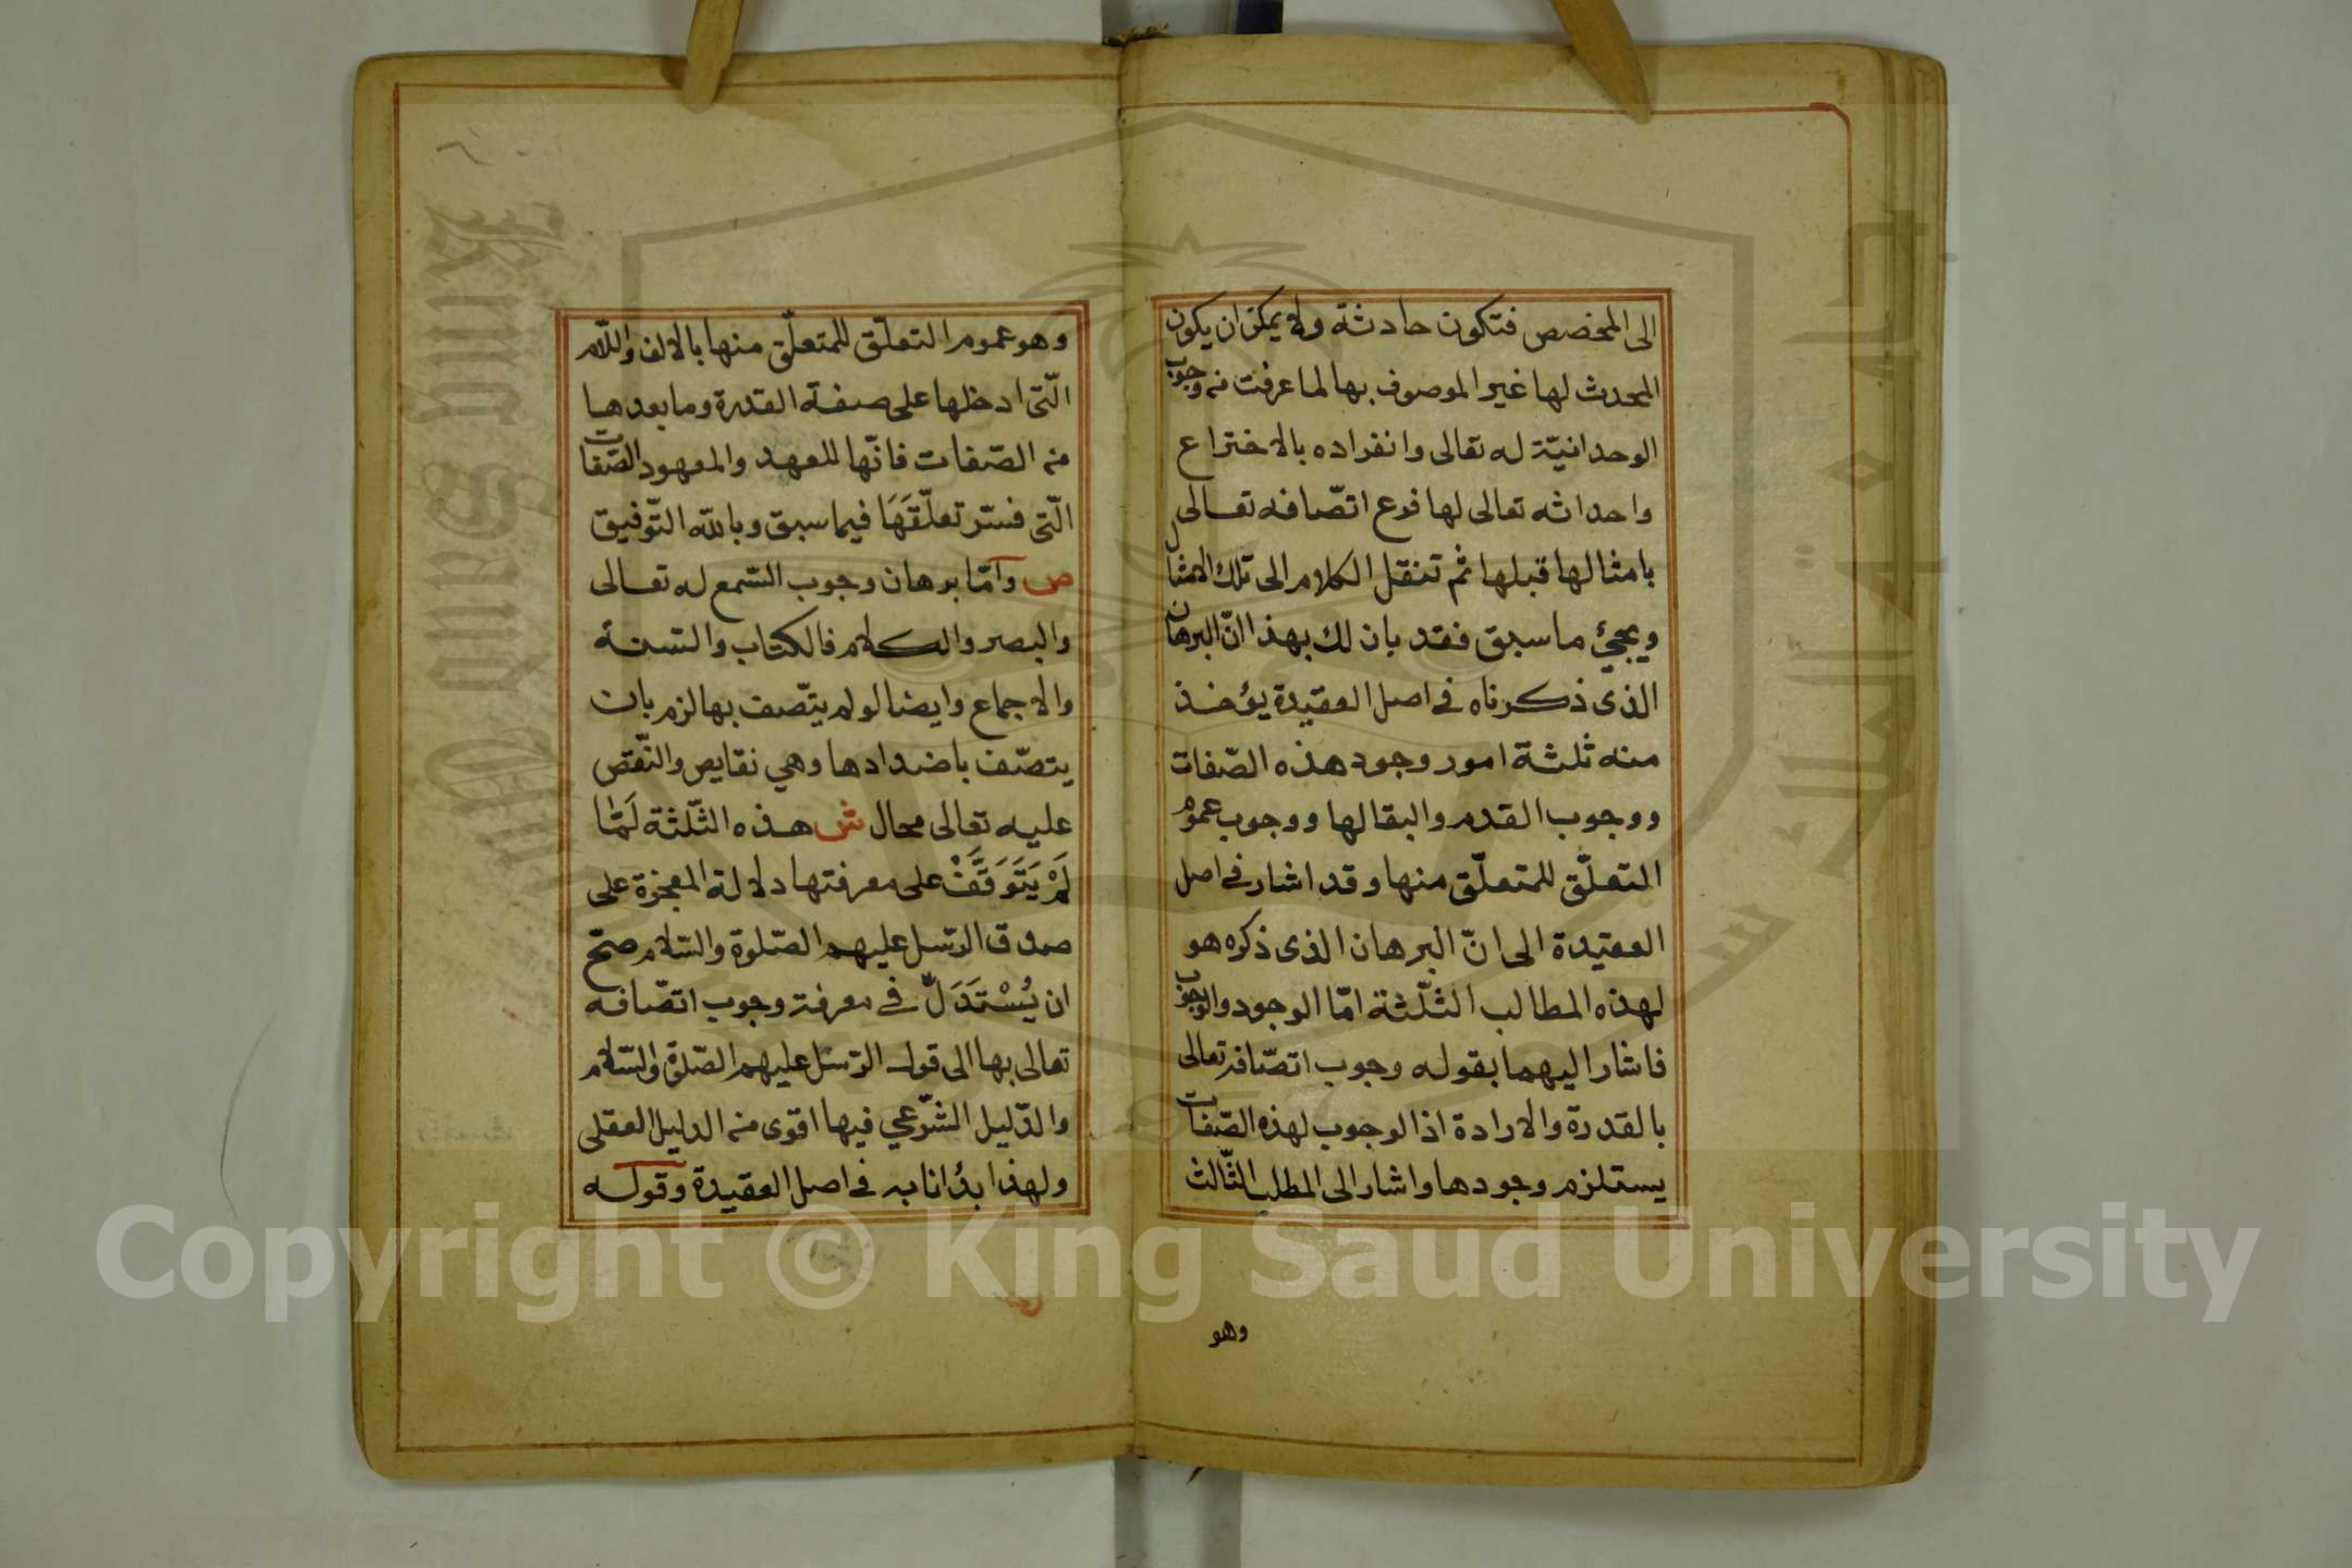 الى المخصص فتكون حادثة ولا يمكن ان يكون
المحدث لها غير الموصوف بها لما عرفت من وجوب
الوحدانيّة له تعالى وانفراده بالاختراع
واحداثه تعالى لها فرع اتصّافه تعالى
بامثالها قبلها ثم تنقل الكلام الى تلك الامثال
ويجئ ما سبق فقد بان لك بهذا انّ البرهان
الذى ذكرناه فى اصل العقيدة يؤخذ
منه ثلثة امور وجود هذه الصّفات
ووجوب القدم والبقا لها ووجوب عموم
التعلّق للمتعلّق منها وقد اشار فى اصل
العقيدة الى انّ البرهان الذى ذكره هو
لهذه المطالب الثلّثة امّا الوجود والوجوب
فاشار اليهما بقوله وجوب اتصّافه تعالى
بالقدرة والارادة اذ الوجوب لهذه الصّفات
يستلزم وجودها واشار الى المطلب الثّالث
وهو
وهو عموم التعلّق للمتعلّق منها بالالف واللّام
الّتى ادخلها على صفة القدرة وما بعدها
من الصّفات فانّها للعهد والمعهود الصّفات
الّتى فسّر تعلّقَهَا فيما سبق وبالله التّوفيق
ص وامّا برهان وجوب السّمع له تعالى
والبصر والكلام فالكتاب والسّنة
والاجماع وايضا لو لم يتّصف بها لزم بان
يتصّف باضدادها وهي نقايص والنّقص
عليه تعالى محال ش هذه الثّلثة لَمّا
لَمْ يَتَوَقَّفْ على معرفتها دلالة المعجزة على
صدق الرّسل عليهم الصّلوة والسّلام صحّ
ان يُسْتَدَلّ فى معرفة وجوب اتصّافه
تعالى بها الى قول الرّسل عليهم الصّلوة والسّلام
والدّليل الشّرعي فيها اقوى من الدليل العقلى
ولهذا بدُانا به فى اصل العقيدة وقوله
Copyright © King Saud University